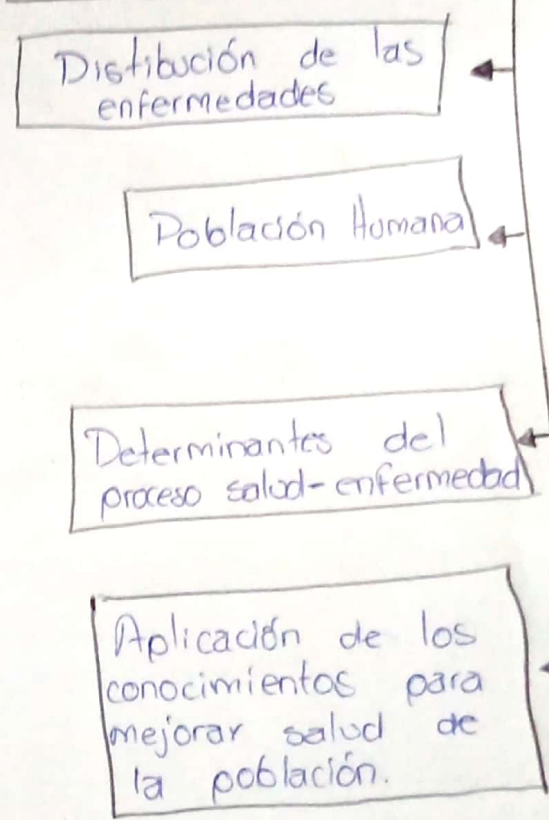 Distibución de las
enfermedades
Población Humana
Determinantes del
proceso salud-enfermedad
Aplicación de los
conocimientos para
mejorar salud de
la población.